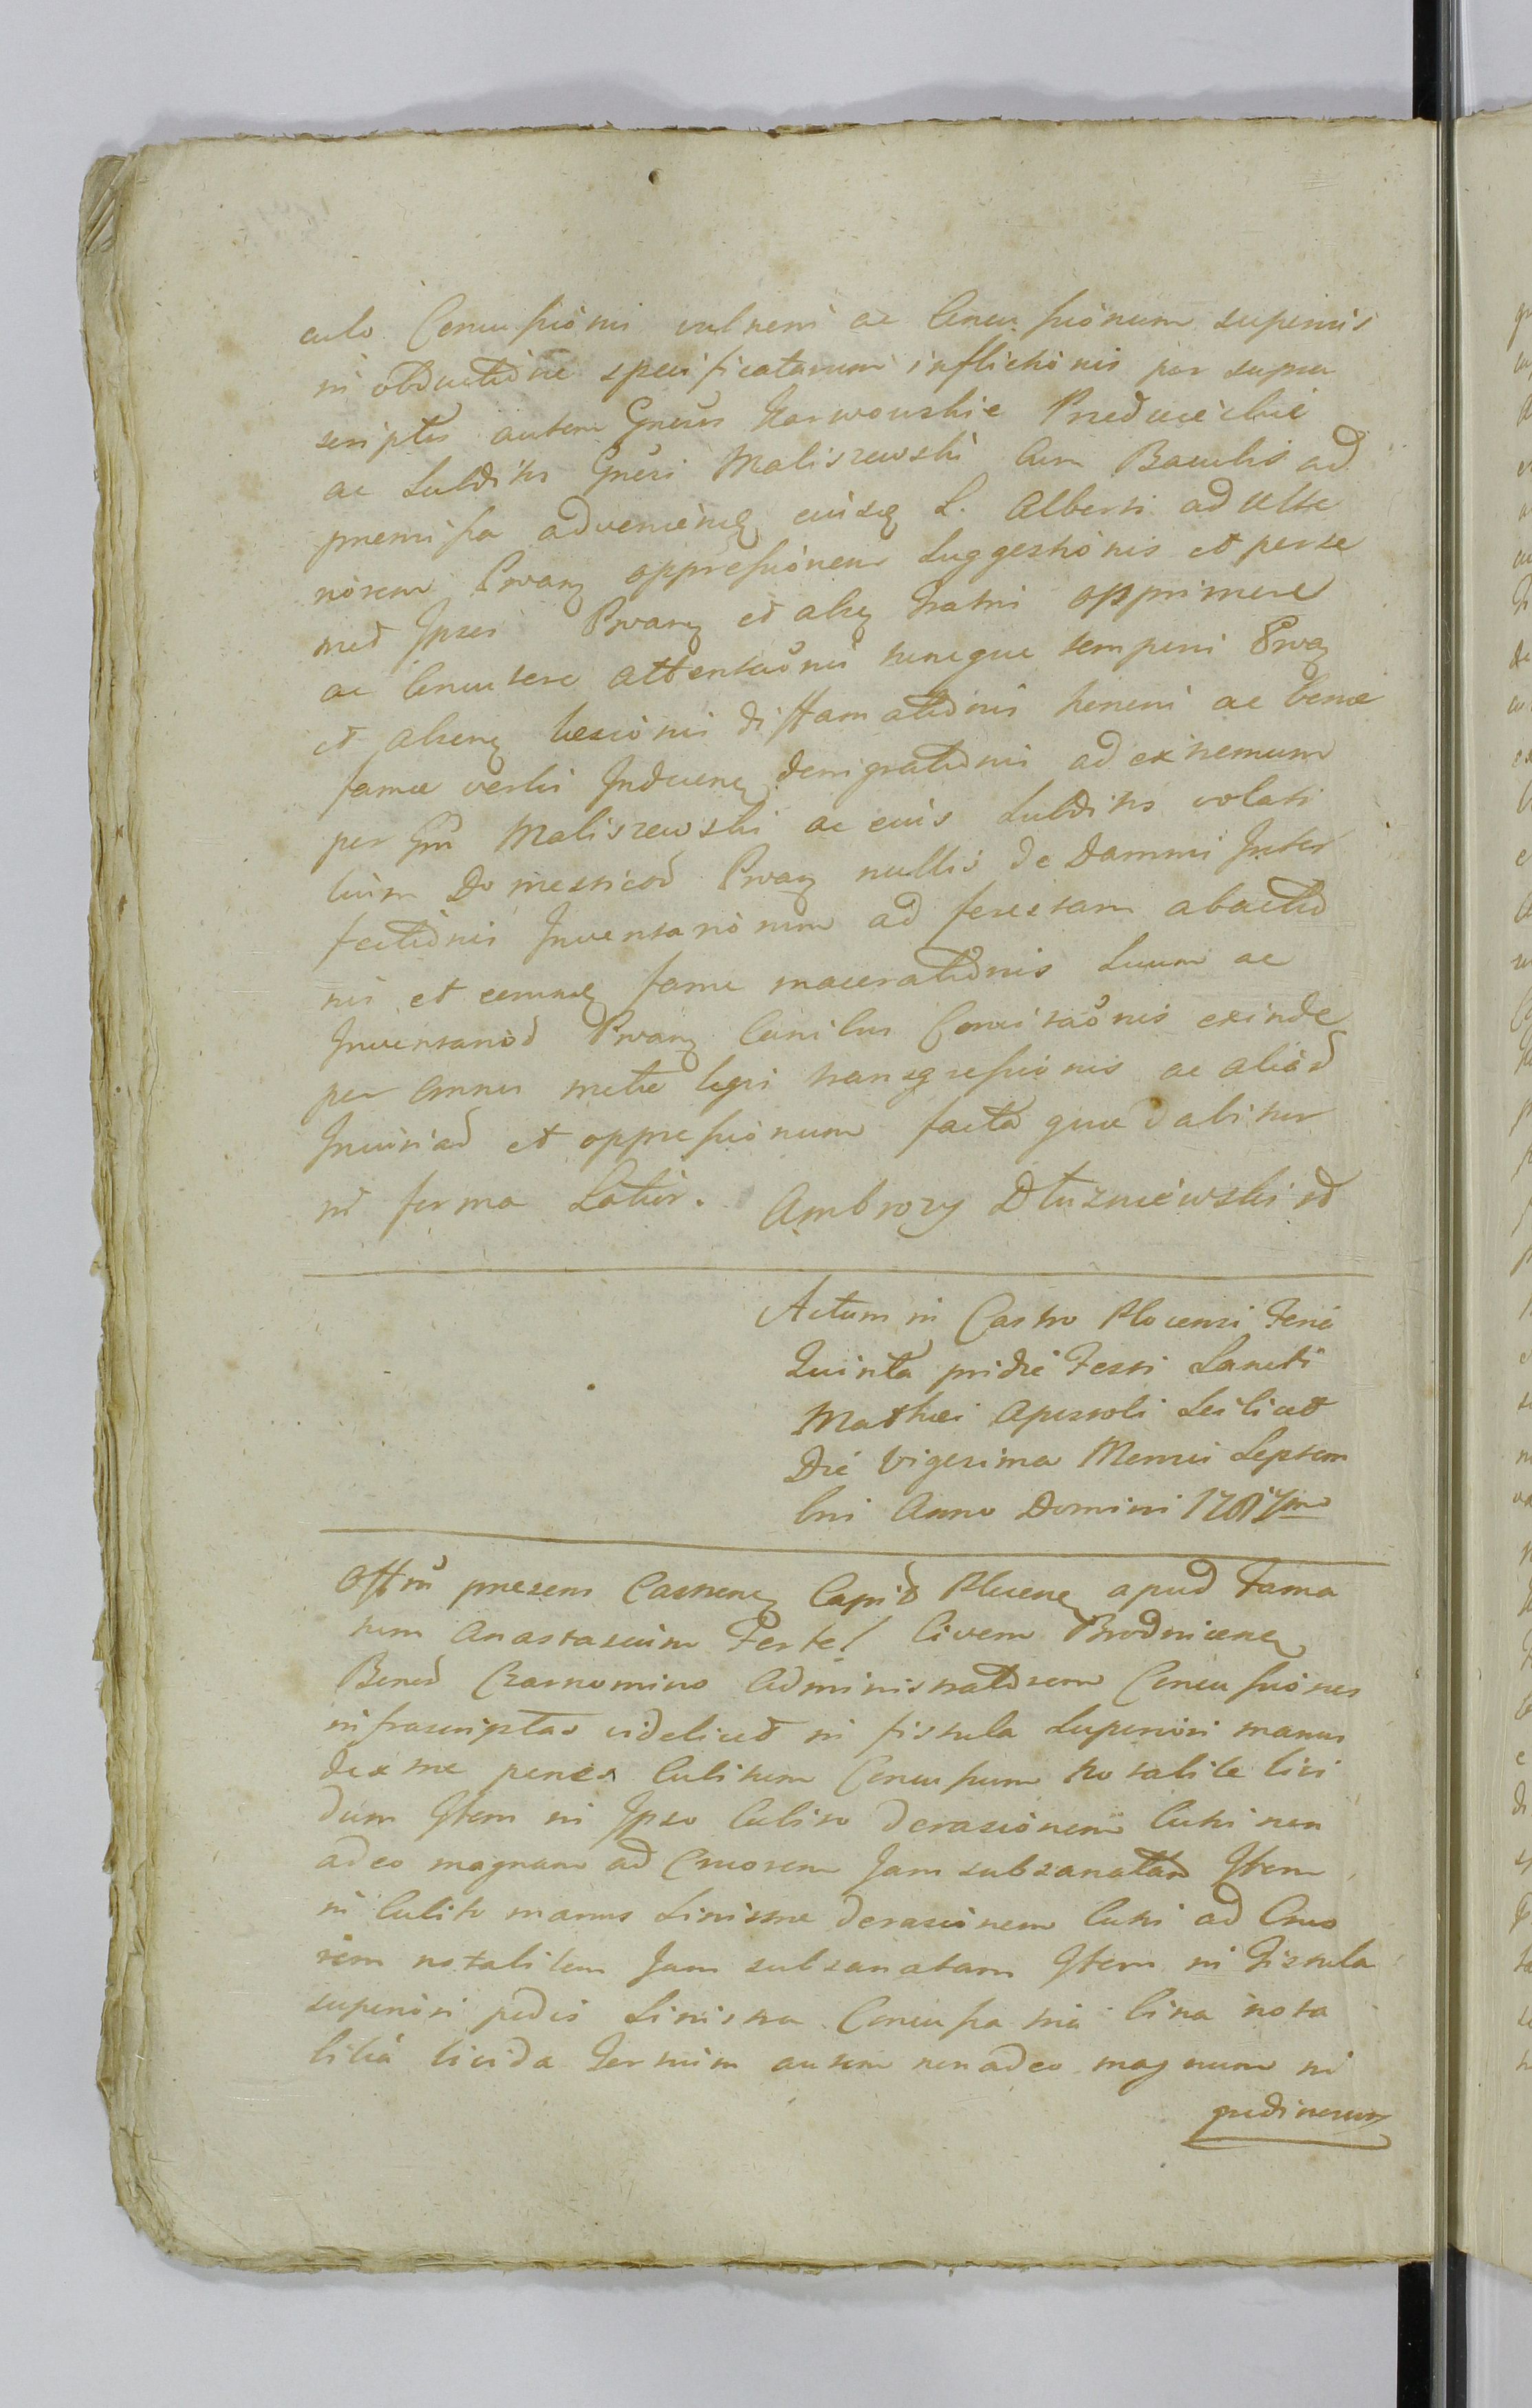 culo Concussionis vulneris ac Concussionum superius
in obductione specificatarum inflictionis per supra
scriptos autem Gnesos Karwowskie Przedwieckie
ac Subditos Gnesi Maliszewski Cum Baculis ad
premissa advenien eiusq S. Alberti ad ulte
riorem Prvan oppressionem Suggestionis et perse
met Ipsos Prvan et alios Fratri opprimere
ac Concutere attentationis tuncque temporis Prva
et aliene laesionis diffamationis honoris ac bonae
famae verbis Indecen denigrationis ad extremum
per Gm Maliszewski ac eius Subditos volati
lium Domesticod Prvan nullis de Damni Inter
fectionis Inventariorum ad forestam abactio
nis et eorumq fame macerationis Suum ac
Inventariod Prvan Canibus Concitationis exinde
per omnes metae legis transgressionis ac aliad
Iniuriad et oppressionum facta quae dabitur
in forma Latior. Ambrozy Dłuzniewski rd
Actum in Castro Plocensi Feria
Quinta pridie Festi Sancti
Mathaei Apostoli Scilicet
Die Vigesima Mensis Septem
bris Anno Domini 1787mo
Offm presens Castren Capit Plocen apud Fama
tum Anastasium Fertel Civem Brodnicen
Bonod Czarnomino Administratorem Concussiones
infrascriptas videlicet in fistula Superiori manus
dextrae penes Cubitum Concussum notabile livi
dum Item in Ipso Cubito derasionem Cutis non
adeo magnam ad Cruorem Jam subsanatam Item
in Cubito manus Sinistrae derasionem Cutis ad Cruo
rem notabilem Jam subsanatam Item in Fistula
superiori pedis Sinistra Concussa tria livia nota
bilia livida Tertium autem non adeo magnum in